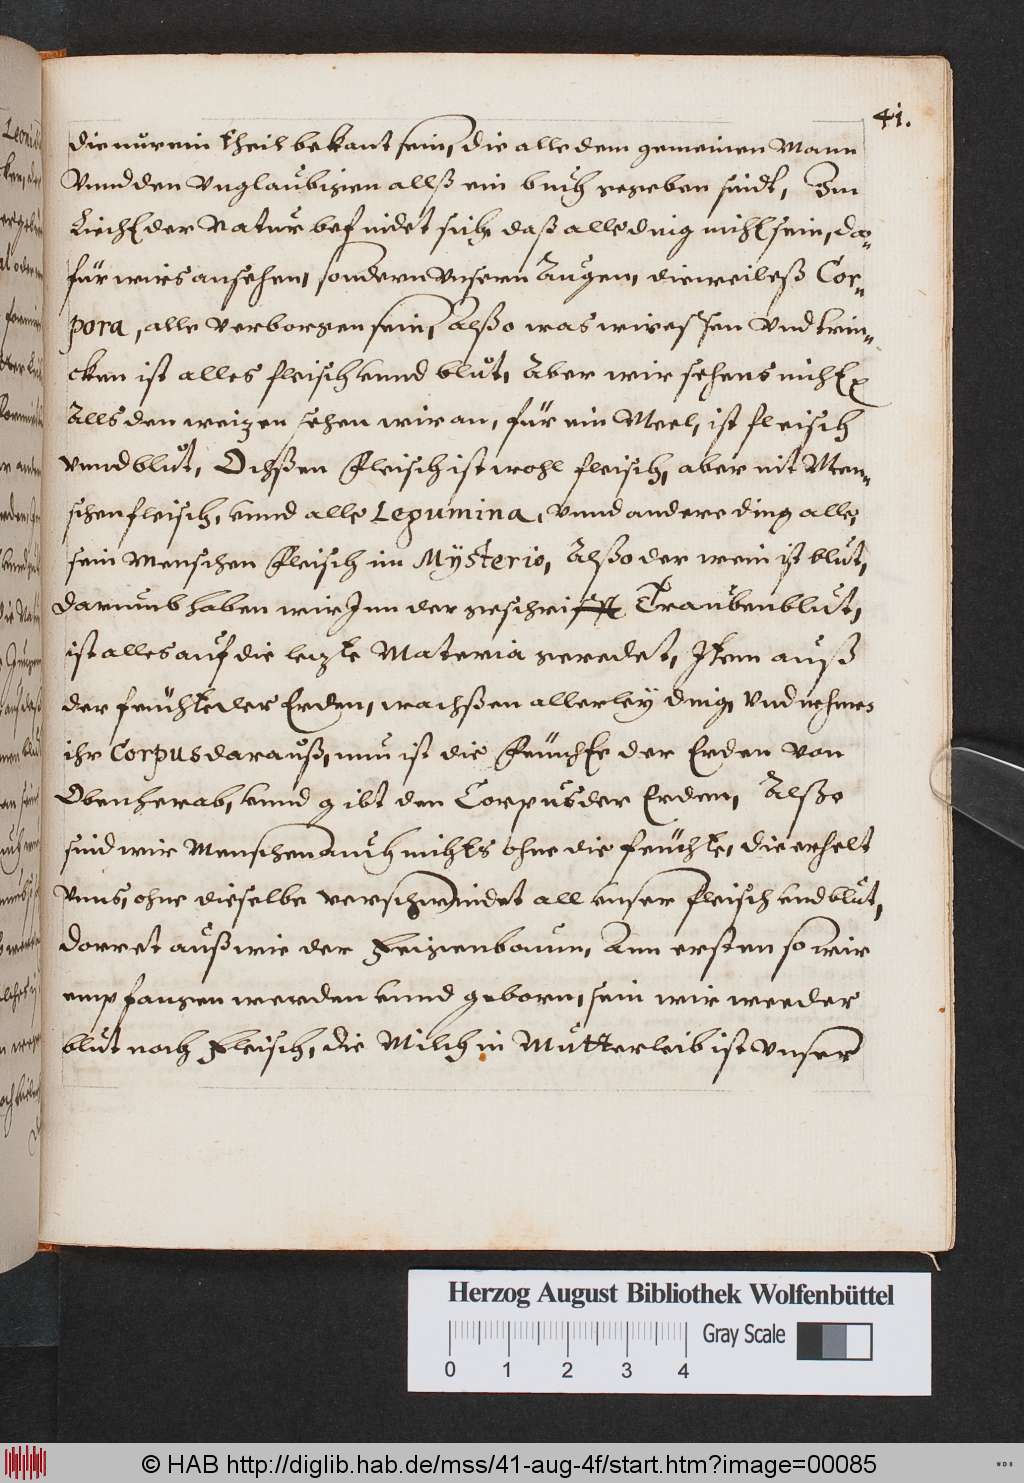 41.
die nur ein theil bekant sein, die alle dem gemeinen Mann
Vnnd den Vnglaubigen allß ein buch gegeben sindt, Im
Liecht der Natur befindet sich, daß alle ding nicht sein, da„
für wirs ansehen, sondern Vnsern Augen, dieweil eß Cor„
pora, alle verborgen sein, Alßo was wir essen Vnd trin„
cken ist alles fleisch vnnd blut, Aber wir sehens nicht
Alls den weizen sehen wir an, für ein Meel, ist fleisch
vnnd blut, Ochßen fleisch ist wohl fleisch, aber nit Men„
schen fleisch, vnnd alle Legumina, Vnnd andere ding alle,
sein Menschen fleisch im Mysterio, Alßo der wein ist blut,
darumb haben wir Inn der geschrifft Traubenblut,
ist alles auf die lezte Materia geredet, Item auß
der feüchte der Erden, wachßen allerley ding, Vnd nehmen
ihr Corpus darauß, nun ist die feüchte der Erden von
Oben herab, vnnd gibt den Corpus der Erden, Alßo
sind wir Menschen auch nichts ohne die feüchte, die erhelt
Vnns, ohne dieselbe verschwindet all vnser fleisch vnd blut,
dorret auß wie der feigenbaum, Am ersten so wir
empfangen werden vnnd geborn, sein wir weeder
blut noch fleisch, die Milch in Mutterleib ist Vnser
Herzog August Bibliothek Wolfenbüttel
Gray Scale
0 1 2 3 4
© HAB http://diglib.hab.de/mss/41-aug-4f/start.htm?image=00085